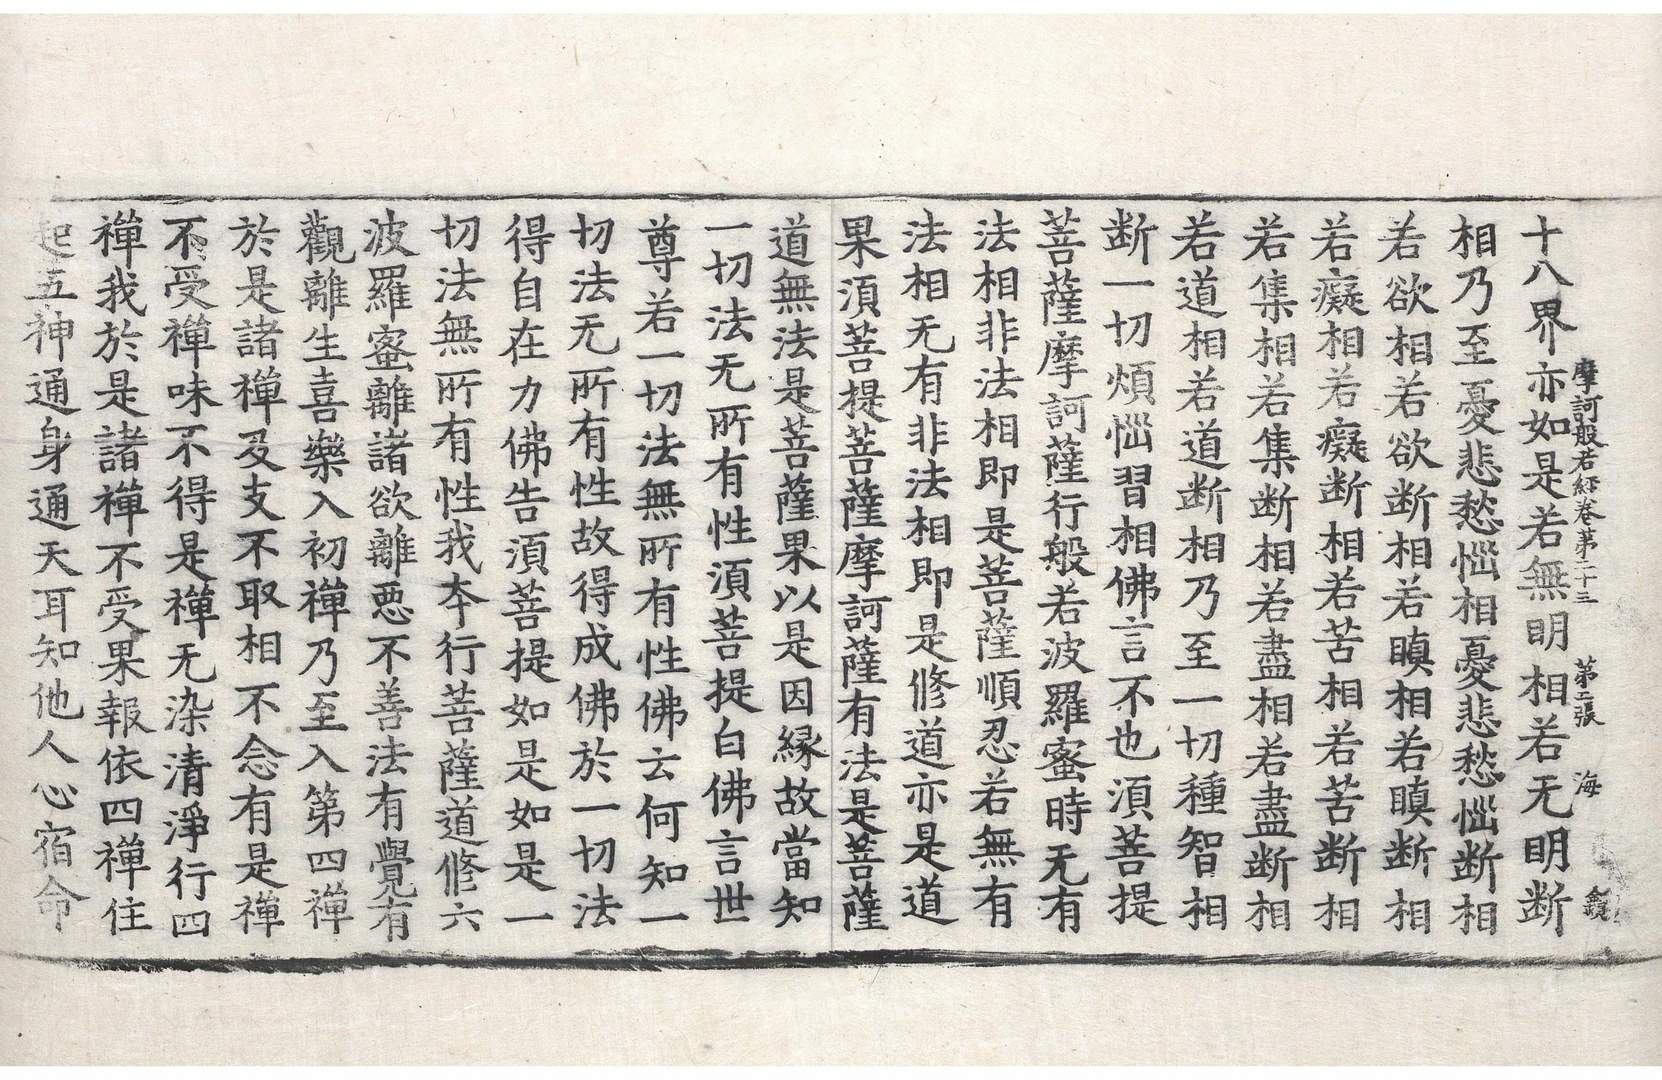 摩訶般若經卷第二十三　第二張　海
十八界亦如是若無明相若无明断
相乃至憂悲愁㤭相憂悲愁㤭断相
若欲相若欲断相若瞋相若瞋断相
若癡相若癡断相若苦相若苦断相
若集相若集断相若盡相若盡断相
若道相若道断相乃至一切種智相
断一切煩㤭習相佛言不也湏菩提
菩薩摩訶薩行般若波羅蜜時无有
法相非法相即是菩薩順忍若無有
法相无有非法相即是修道亦是道
果湏菩提菩薩摩訶薩有法是菩薩
道無法是菩薩果以是因縁故當知
一切法无所有性湏菩提白佛言世
尊若一切法無所有性佛云何知一
切法无所有性故得成佛於一切法
得自在力佛告湏菩提如是如是一
切法無所有性我夲行菩薩道修六
波羅蜜離諸欲離惡不善法有覺有
觀離生喜樂入初禪乃至入第四禪
於是諸禪及支不取相不念有是禪
不受禪味不得是禪无染清淨行四
禪我於是諸禪不受果報依四禪住
起五神通身通天耳知他人心宿命